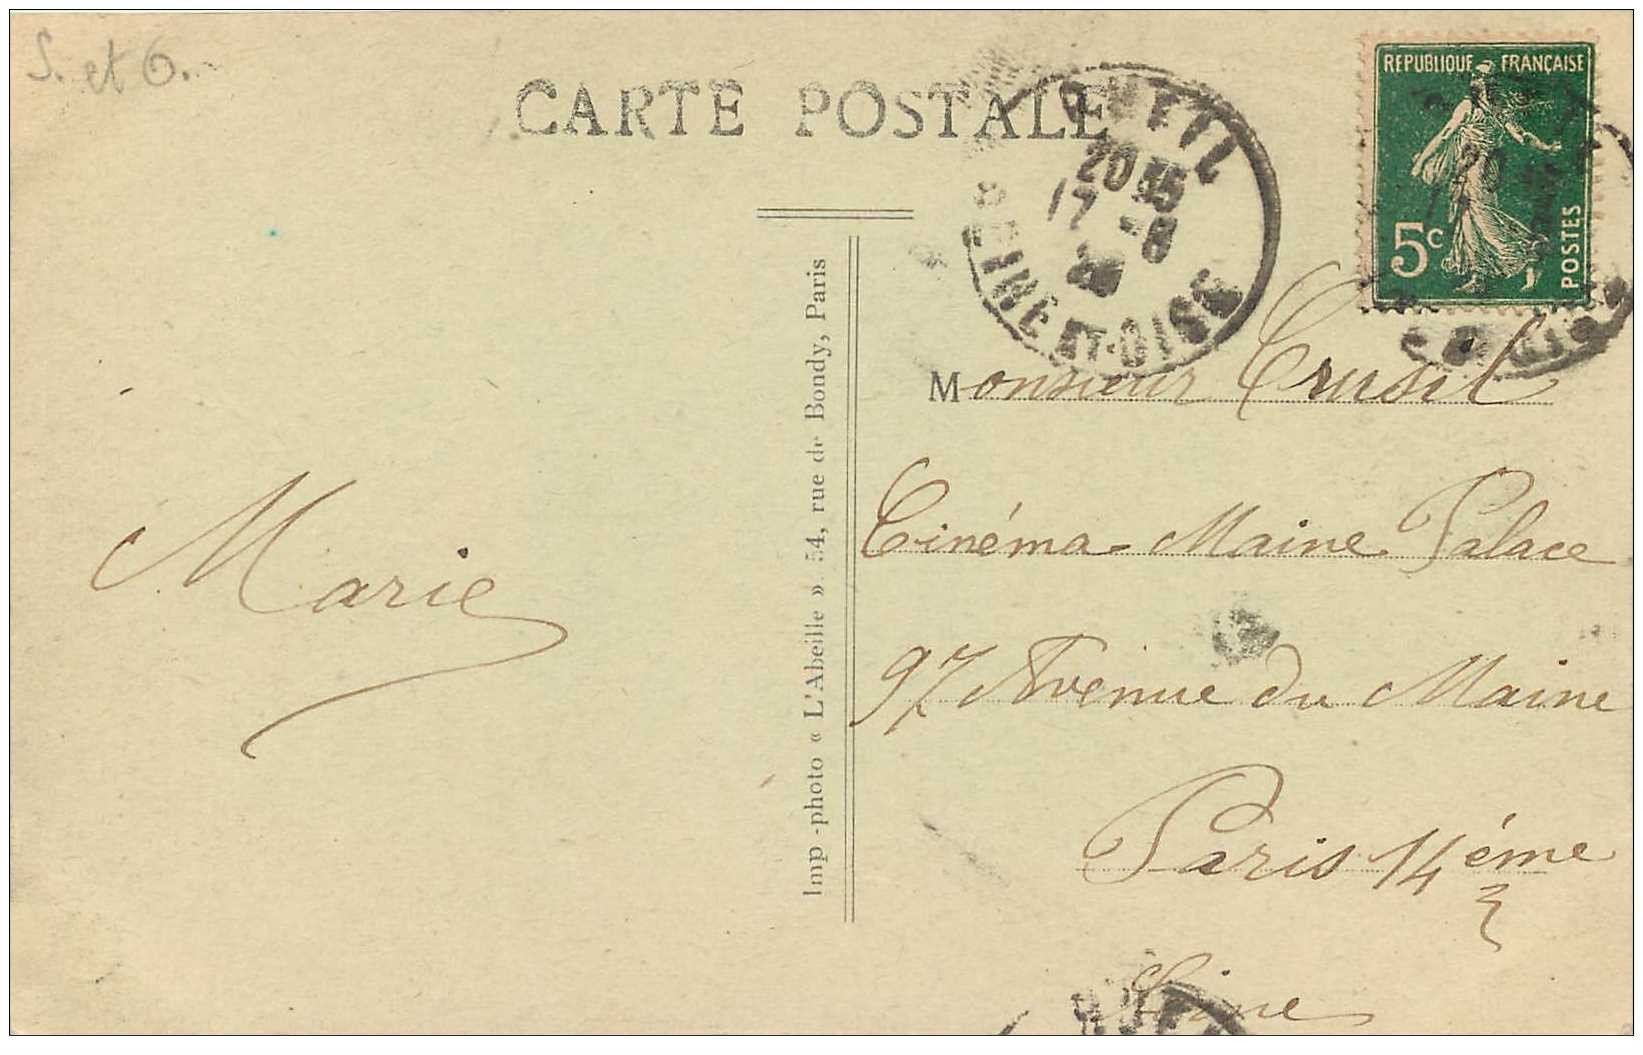 S. et O.
CARTE POSTALE
RUEIL
20 35
17 -8
20
SEINE ET-OISE
REPUBLIQUE FRANÇAISE
5c
POSTES
Marie
Imp-photo « L'Abeille » 54, rue de Bondy, Paris
Monsieur Crusil
Cinéma Maine Palace
97 Avenue du Maine
Paris 14ème
Seine